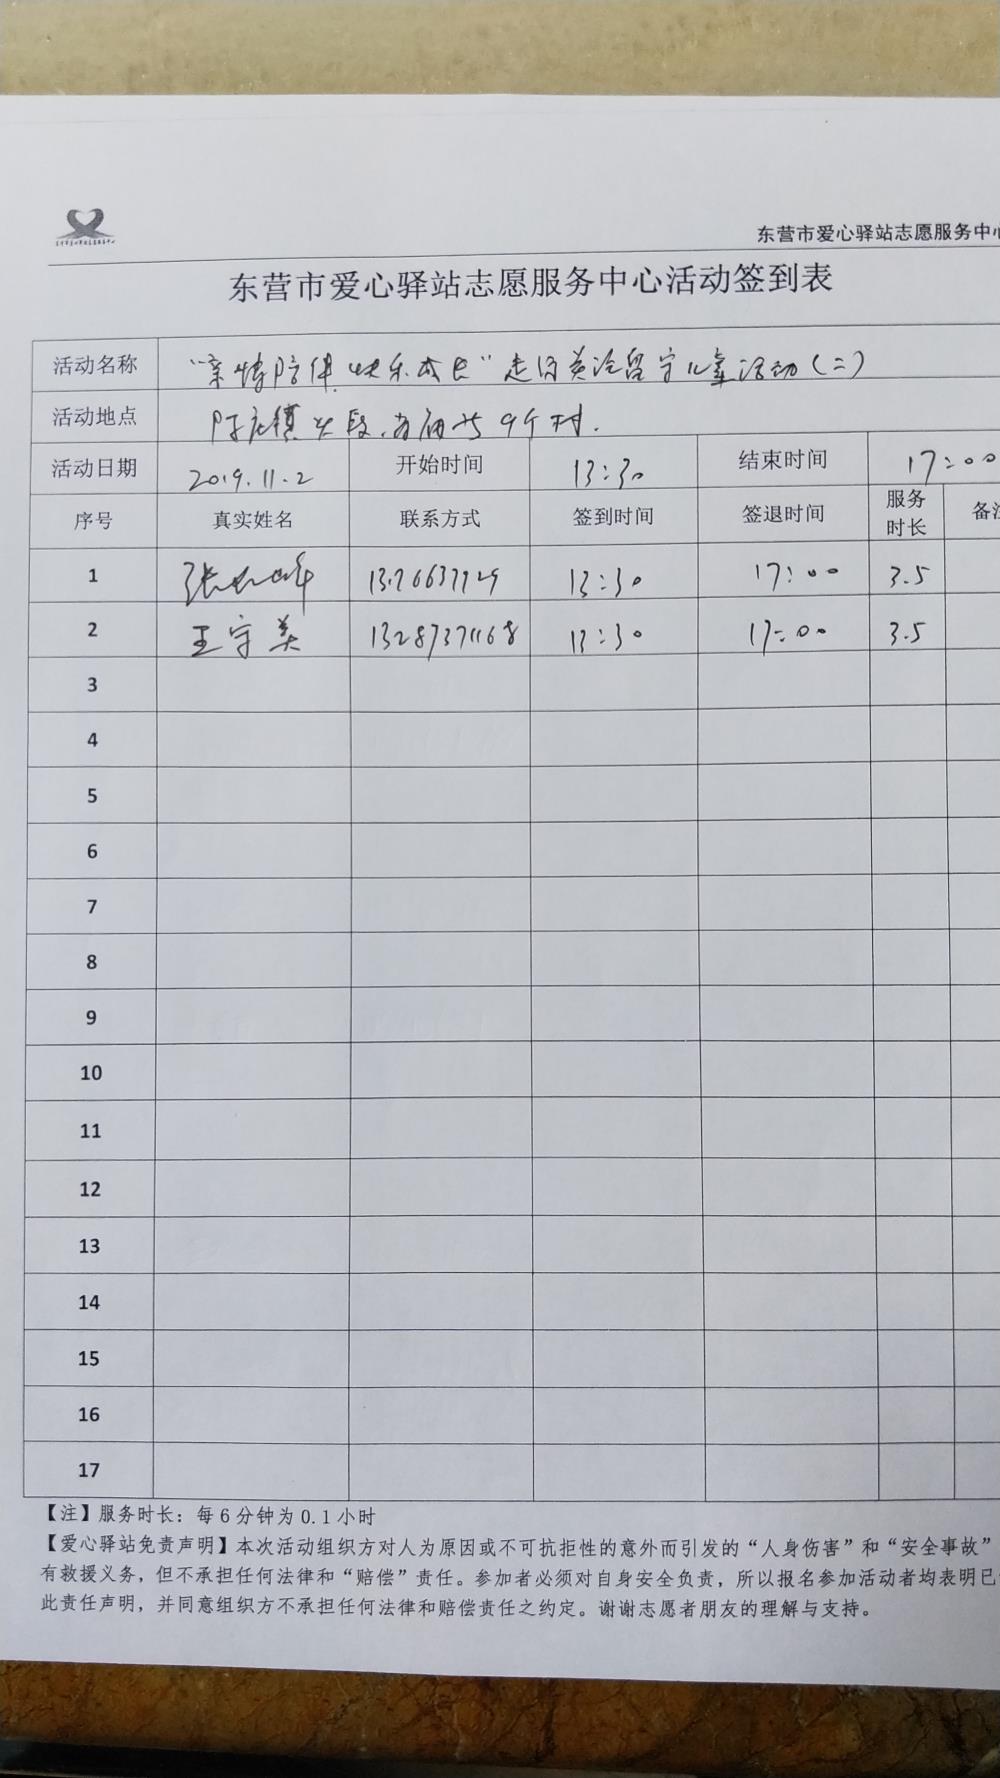 东营市爱心驿站志愿服务中心
东营市爱心驿站志愿服务中心活动签到表
活动名称 “亲情陪伴 快乐成长”走访关爱留守儿童活动(二)
活动地点 陈庄镇 9个村.
活动日期 2019.11.2 开始时间 13:30 结束时间 17:00
序号 真实姓名 联系方式 签到时间 签退时间 服务时长 备注
1 张 13:30 17:00 3.5
2 王守美 13287371168 13:30 17:00 3.5
3
4
5
6
7
8
9
10
11
12
13
14
15
16
17
【注】服务时长：每6分钟为0.1小时
【爱心驿站免责声明】本次活动组织方对人为原因或不可抗拒性的意外而引发的“人身伤害”和“安全事故”
有救援义务，但不承担任何法律和“赔偿”责任。参加者必须对自身安全负责，所以报名参加活动者均表明已
此责任声明，并同意组织方不承担任何法律和赔偿责任之约定。谢谢志愿者朋友的理解与支持。